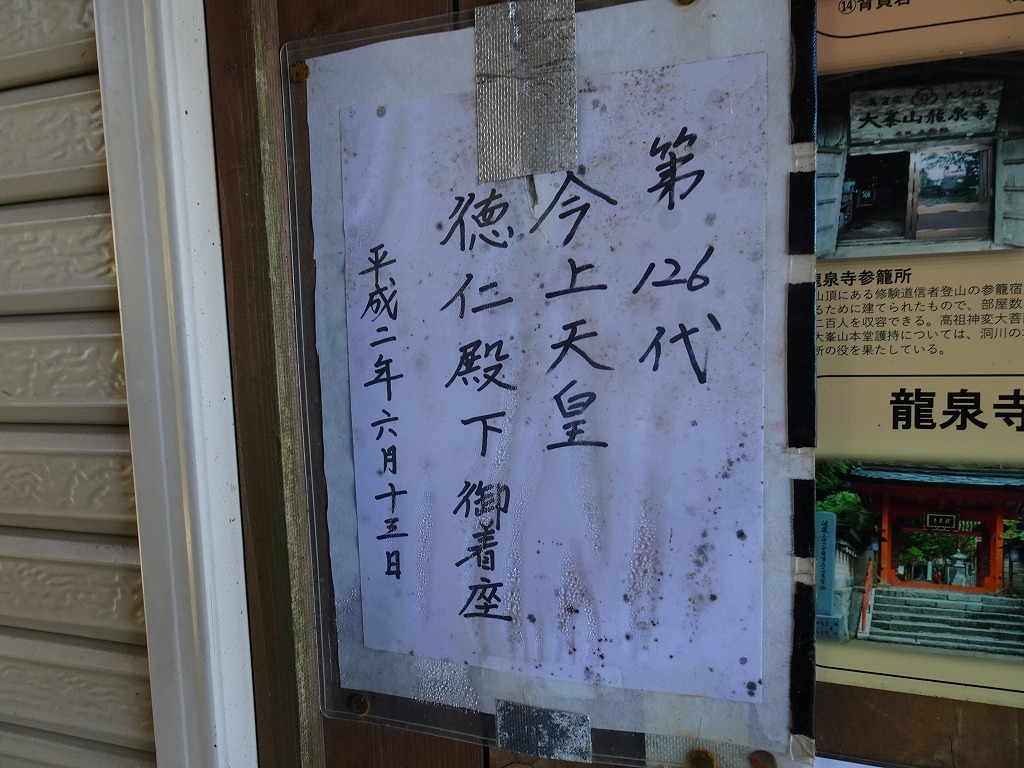 第126代
今上天皇
徳仁殿下御着座
平成二年六月十三日
⑭背負岩
大峯山龍泉寺
龍泉寺参籠所
山頂にある修験道信者登山の参籠宿
るために建てられたもので、部屋数
二百人を収容できる。高祖神変大菩
大峯山本堂護持については、洞川の
所の役を果たしている。
龍泉寺